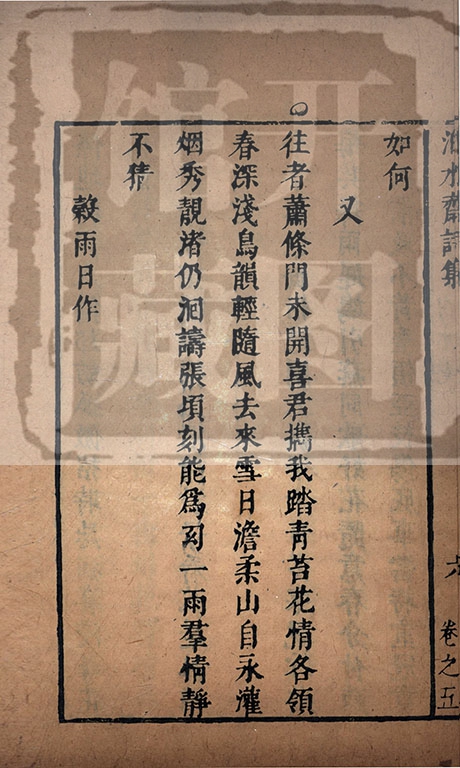 如何
又
往者蕭條門未開喜君攜我踏青苔花情各領
春深淺鳥韻輕隨風去來雪日澹柔山自永灌
烟秀靚渚仍洄譸張頃刻能爲幻一雨羣情靜
不猜
穀雨日作
卷之五
开图馆藏